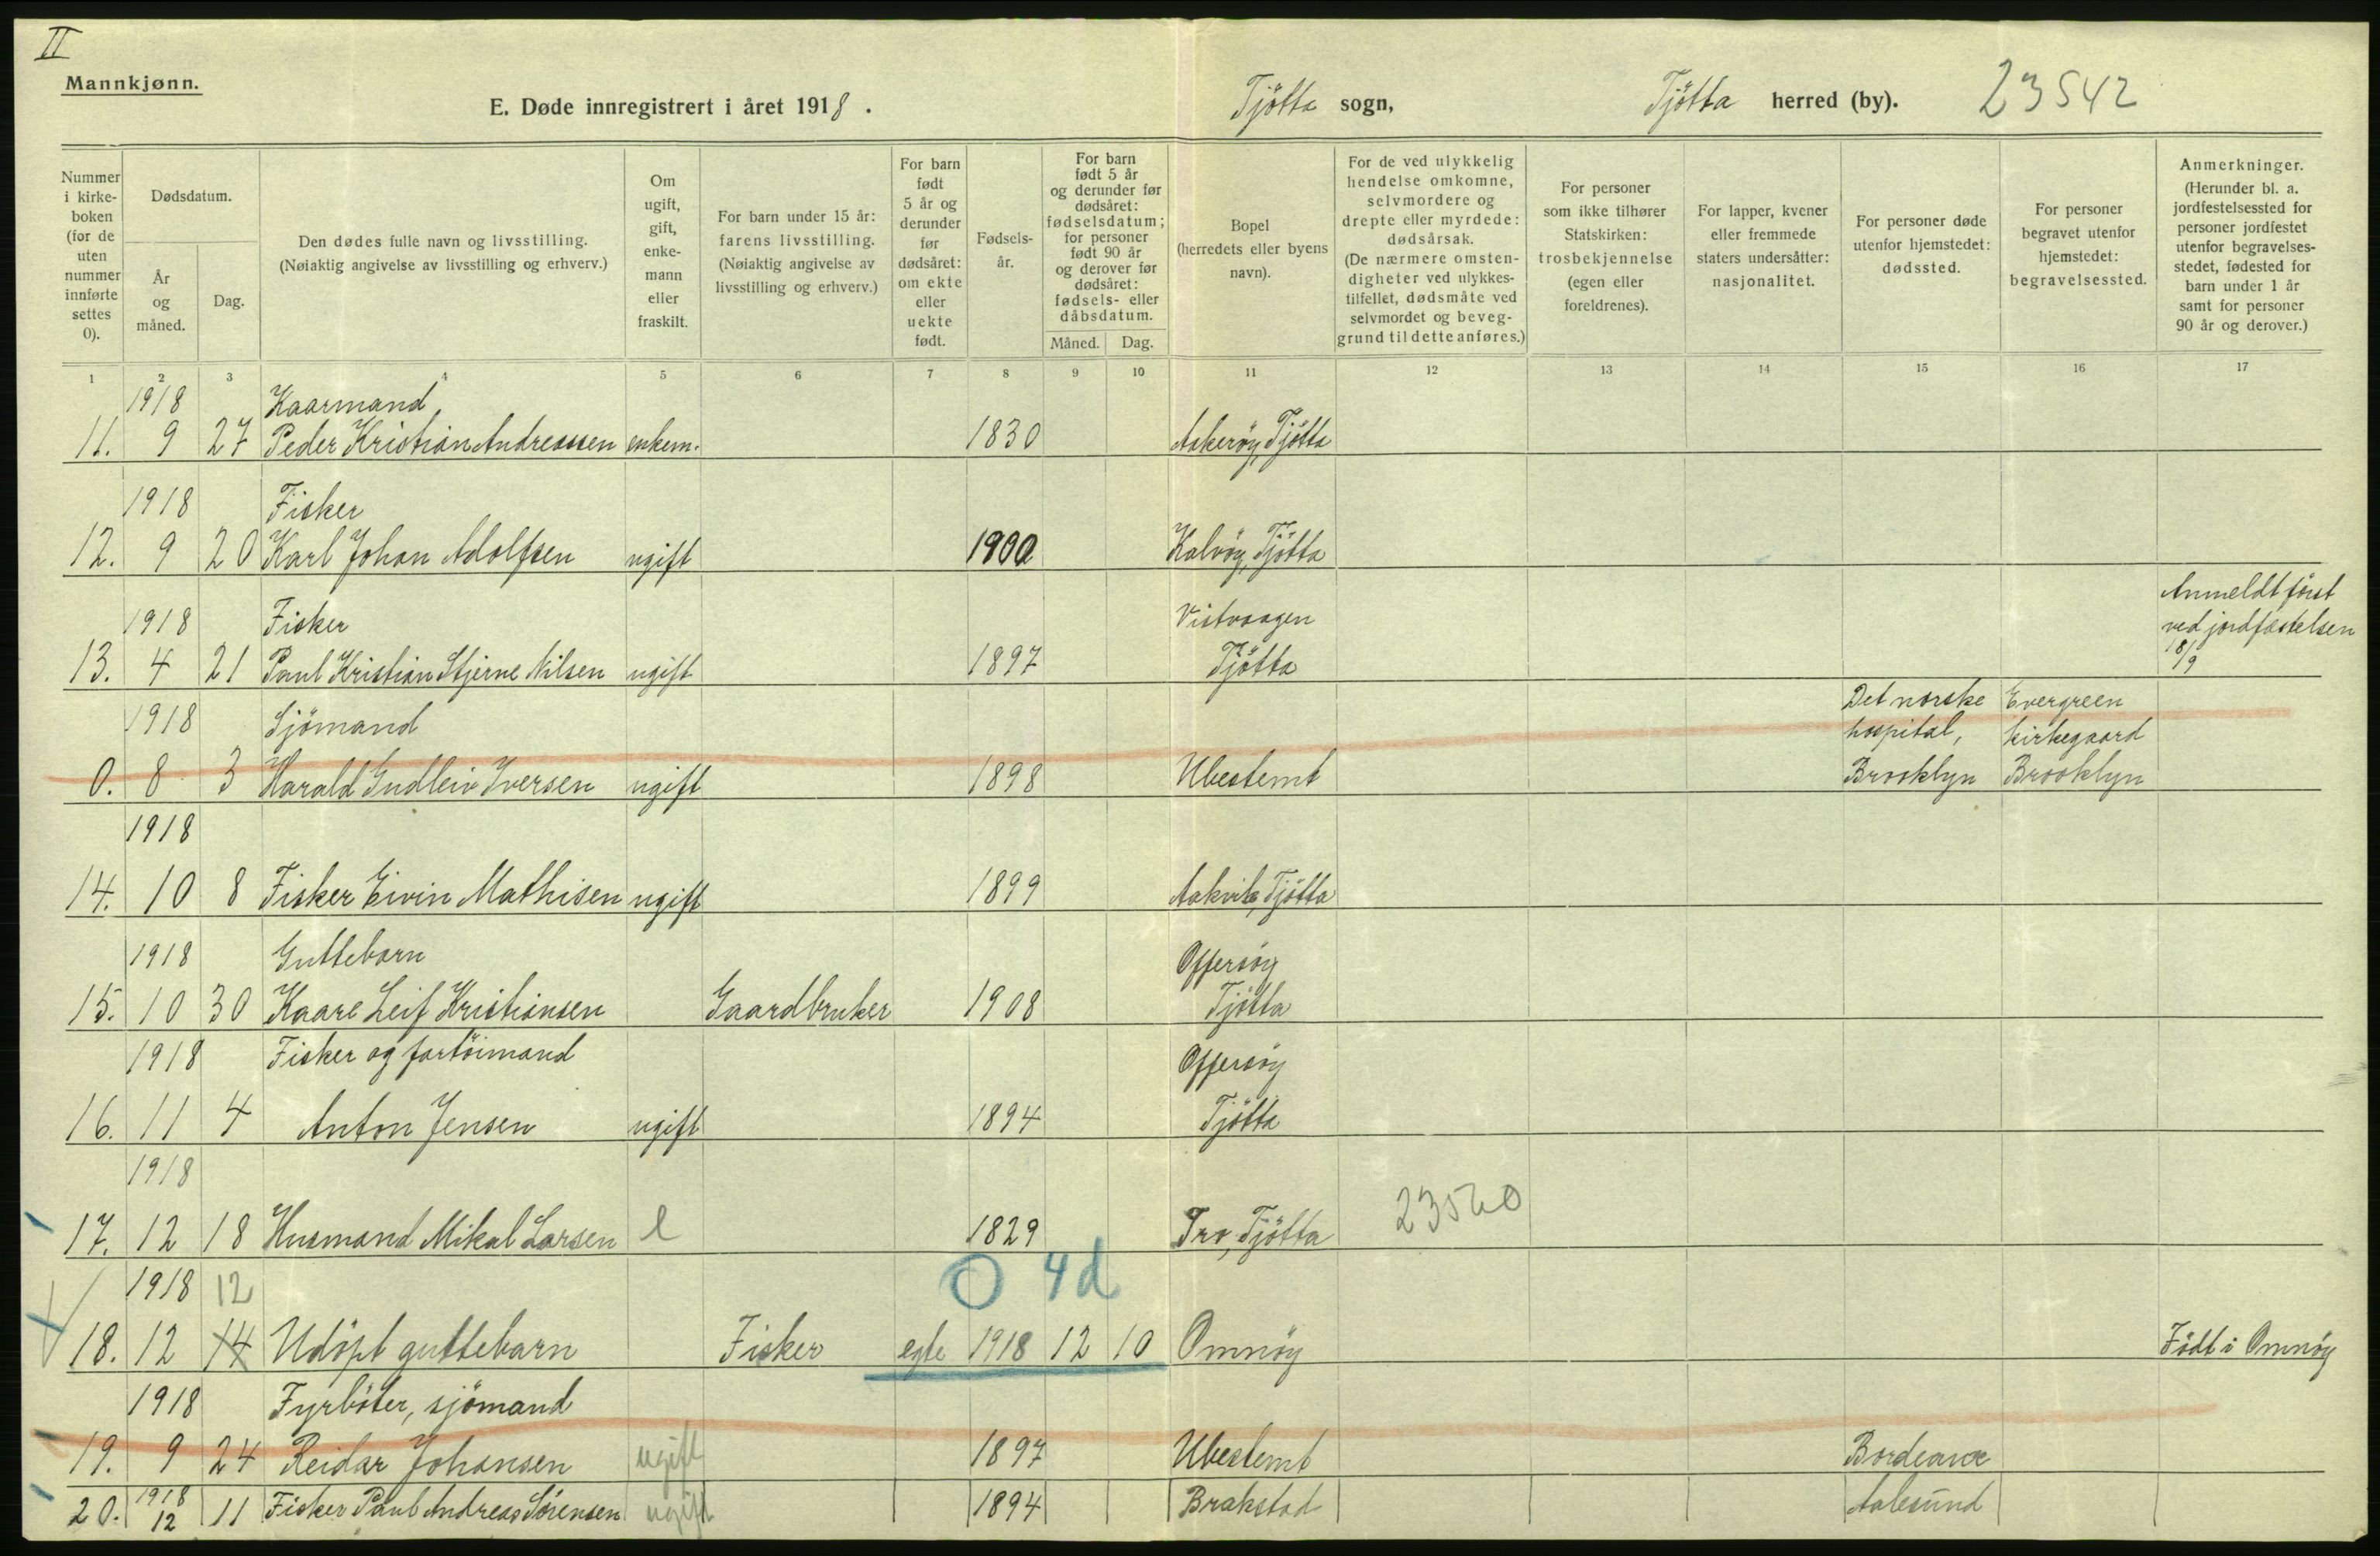 II
Mannkjønn.
E. Døde innregistrert i året 1918.
Tjötta sogn,
Tjötta herred (by).
23542
Nummer i kirke-boken (for de uten nummer innførte settes 0).
Dødsdatum.
År og måned.
Dag.
Den dødes fulle navn og livsstilling.
(Nøiaktig angivelse av livsstilling og erhverv.)
Om ugift, gift, enke-mann eller fraskilt.
For barn under 15 år: farens livsstilling. (Nøiaktig angivelse av livsstilling og erhverv.)
For barn født 5 år og derunder før dødsåret: om ekte eller uekte født.
Fødsels-år.
For barn født 5 år og derunder før dødsåret: fødselsdatum; for personer født 90 år og derover før dødsåret: fødsels- eller dåbsdatum.
Måned.
Dag.
Bopel (herredets eller byens navn).
For de ved ulykkelig hendelse omkomne, selvmordere og drepte eller myrdede: dødsårsak. (De nærmere omsten-digheter ved ulykkes-tilfellet, dødsmåte ved selvmordet og beveg-grund til dette anføres.)
For personer som ikke tilhører Statskirken: trosbekjennelse (egen eller foreldrenes).
For lapper, kvener eller fremmede staters undersåtter: nasjonalitet.
For personer døde utenfor hjemstedet: dødssted.
For personer begravet utenfor hjemstedet: begravelsessted.
Anmerkninger. (Herunder bl. a. jordfestelsessted for personer jordfestet utenfor begravelses-stedet, fødested for barn under 1 år samt for personer 90 år og derover.)
1 2 3 4 5 6 7 8 9 10 11 12 13 14 15 16 17
1918 Kaarmand
11. 9 27 Peder Kristian Andreassen enkem. 1830 Askeröy, Tjötta
1918 Fisker
12. 9 20 Karl Johan Adolfsen ugift 1900 Kalvöy, Tjötta
1918 Fisker Vistvaagen Anmeldt först ved jordfæstelsen 18/9
13. 4 21 Paul Kristian Stjerne Nilsen ugift 1897 Tjötta
1918 Sjömand Det norske hospital, Evergreen kirkegaard
0. 8 3 Harald Gudleiv Iversen ugift 1898 Ubestemt Brooklyn Brooklyn
1918
14. 10 8 Fisker Eivin Mathisen ugift 1899 Aakvik, Tjötta
1918 Guttebarn Offersöy
15. 10 30 Kaare Leif Kristiansen Gaardbruker 1908 Tjötta
1918 Fisker og fartöimand Offersöy
16. 11 4 Anton Jensen ugift 1894 Tjötta
1918
17. 12 18 Husmand Mikal Larsen e 1829 Tro, Tjötta 23520
1918 12 0 4d
18. 12 14 Udöpt guttebarn Fisker egte 1918 12 10 Omnöy Födt i Omnöy
1918 Fyrböter, sjömand
19. 9 24 Reidar Johansen ugift 1897 Ubestemt Bordeaux
20. 1918 12 11 Fisker Paul Andreas Sörensen ugift 1894 Brakstad Aalesund